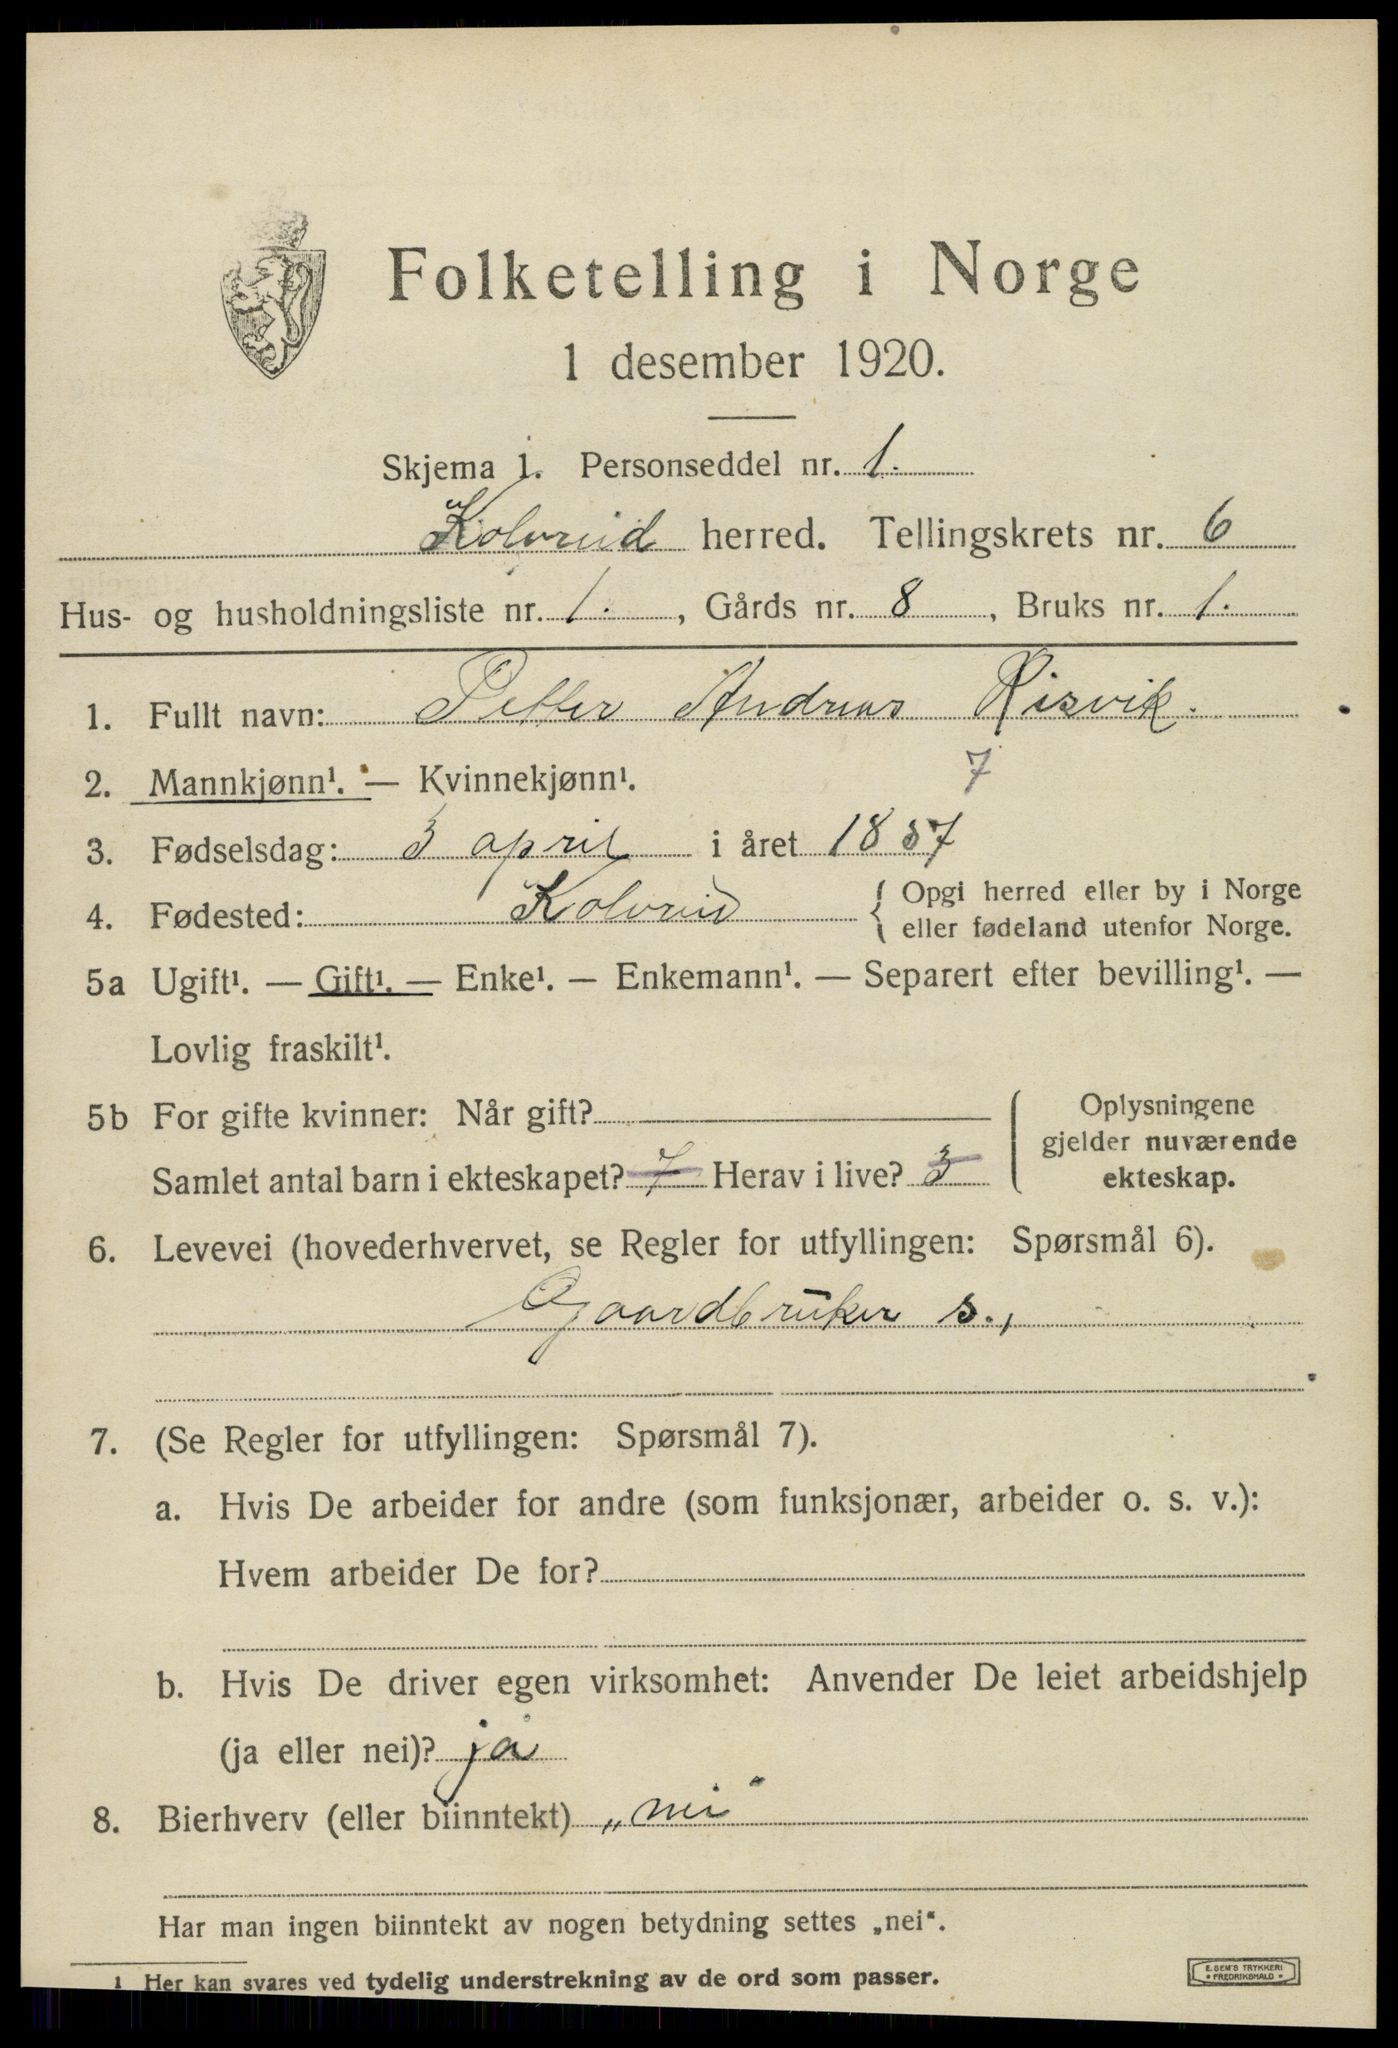 Folketelling i Norge
1 desember 1920.
Skjema 1. Personseddel nr. 1.
Kolvreid herred. Tellingskrets nr. 6
Hus- og husholdningsliste nr. 1. , Gårds nr. 8 , Bruks nr. 1.
1. Fullt navn: Petter Andreas Risvik.
2. Mannkjønn¹. — Kvinnekjønn¹. 7
3. Fødselsdag: 3 april i året 1857
4. Fødested: Kolvreid { Opgi herred eller by i Norge
eller fødeland utenfor Norge.
5a Ugift¹. — Gift¹. — Enke¹. — Enkemann¹. — Separert efter bevilling¹. —
Lovlig fraskilt¹.
5b For gifte kvinner: Når gift?
Samlet antal barn i ekteskapet? 7 Herav i live? 3
{ Oplysningene
gjelder nuværende
ekteskap.
6. Levevei (hovederhvervet, se Regler for utfyllingen: Spørsmål 6).
Gaardbruker s.,
7. (Se Regler for utfyllingen: Spørsmål 7).
a. Hvis De arbeider for andre (som funksjonær, arbeider o. s. v.):
Hvem arbeider De for?
b. Hvis De driver egen virksomhet: Anvender De leiet arbeidshjelp
(ja eller nei)? ja
8. Bierhverv (eller biinntekt) „nei"
Har man ingen biinntekt av nogen betydning settes „nei".
1 Her kan svares ved tydelig understrekning av de ord som passer.
E. SEM'S TRYKKERI
• FREDRIKSHALD •